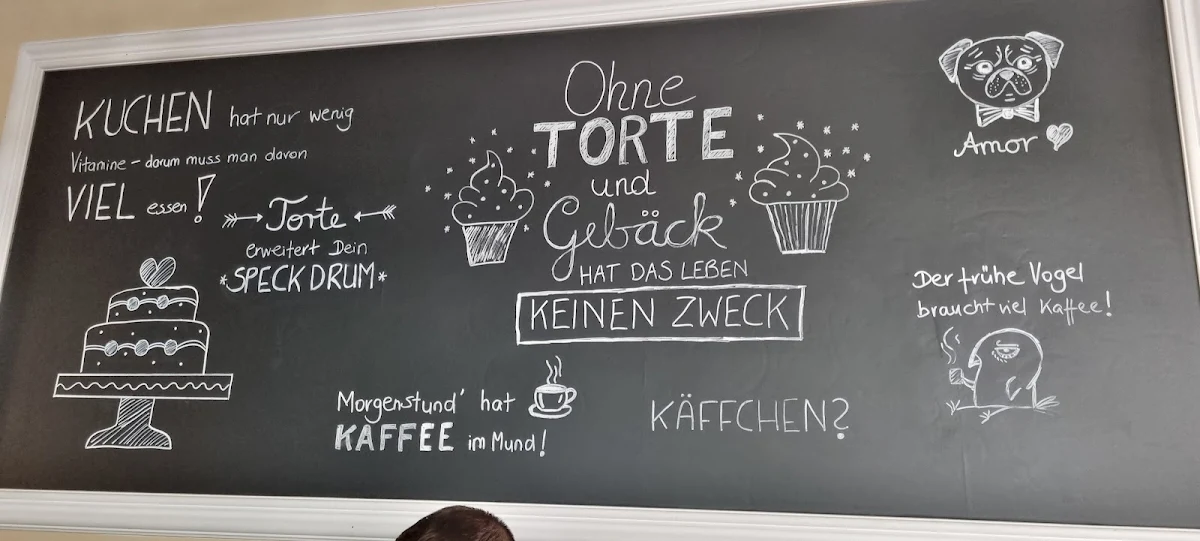 KUCHEN hat nur wenig
Vitamine – darum muss man davon
VIEL essen!
Torte
erweitert Dein
*SPECKDRUM*
Ohne
TORTE
und
Gebäck
HAT DAS LEBEN
KEINEN ZWECK
Amor
Der frühe Vogel
braucht viel Kaffee!
Morgenstund' hat
KAFFEE im Mund!
KÄFFCHEN?